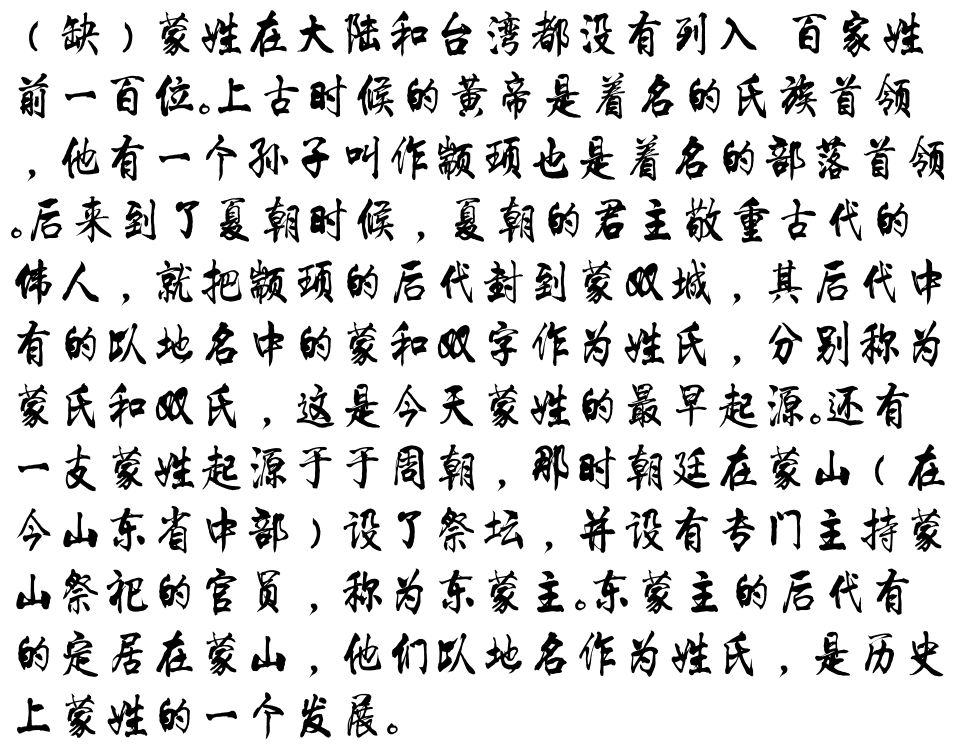 （缺）蒙姓在大陆和台湾都没有列入 百家姓
前一百位。上古时候的黄帝是着名的氏族首领
，他有一个孙子叫作颛顼也是着名的部落首领
。后来到了夏朝时候，夏朝的君主敬重古代的
伟人，就把颛顼的后代封到蒙双城，其后代中
有的以地名中的蒙和双字作为姓氏，分别称为
蒙氏和双氏，这是今天蒙姓的最早起源。还有
一支蒙姓起源于于周朝，那时朝廷在蒙山（在
今山东省中部）设了祭坛，并设有专门主持蒙
山祭祀的官员，称为东蒙主。东蒙主的后代有
的定居在蒙山，他们以地名作为姓氏，是历史
上蒙姓的一个发展。